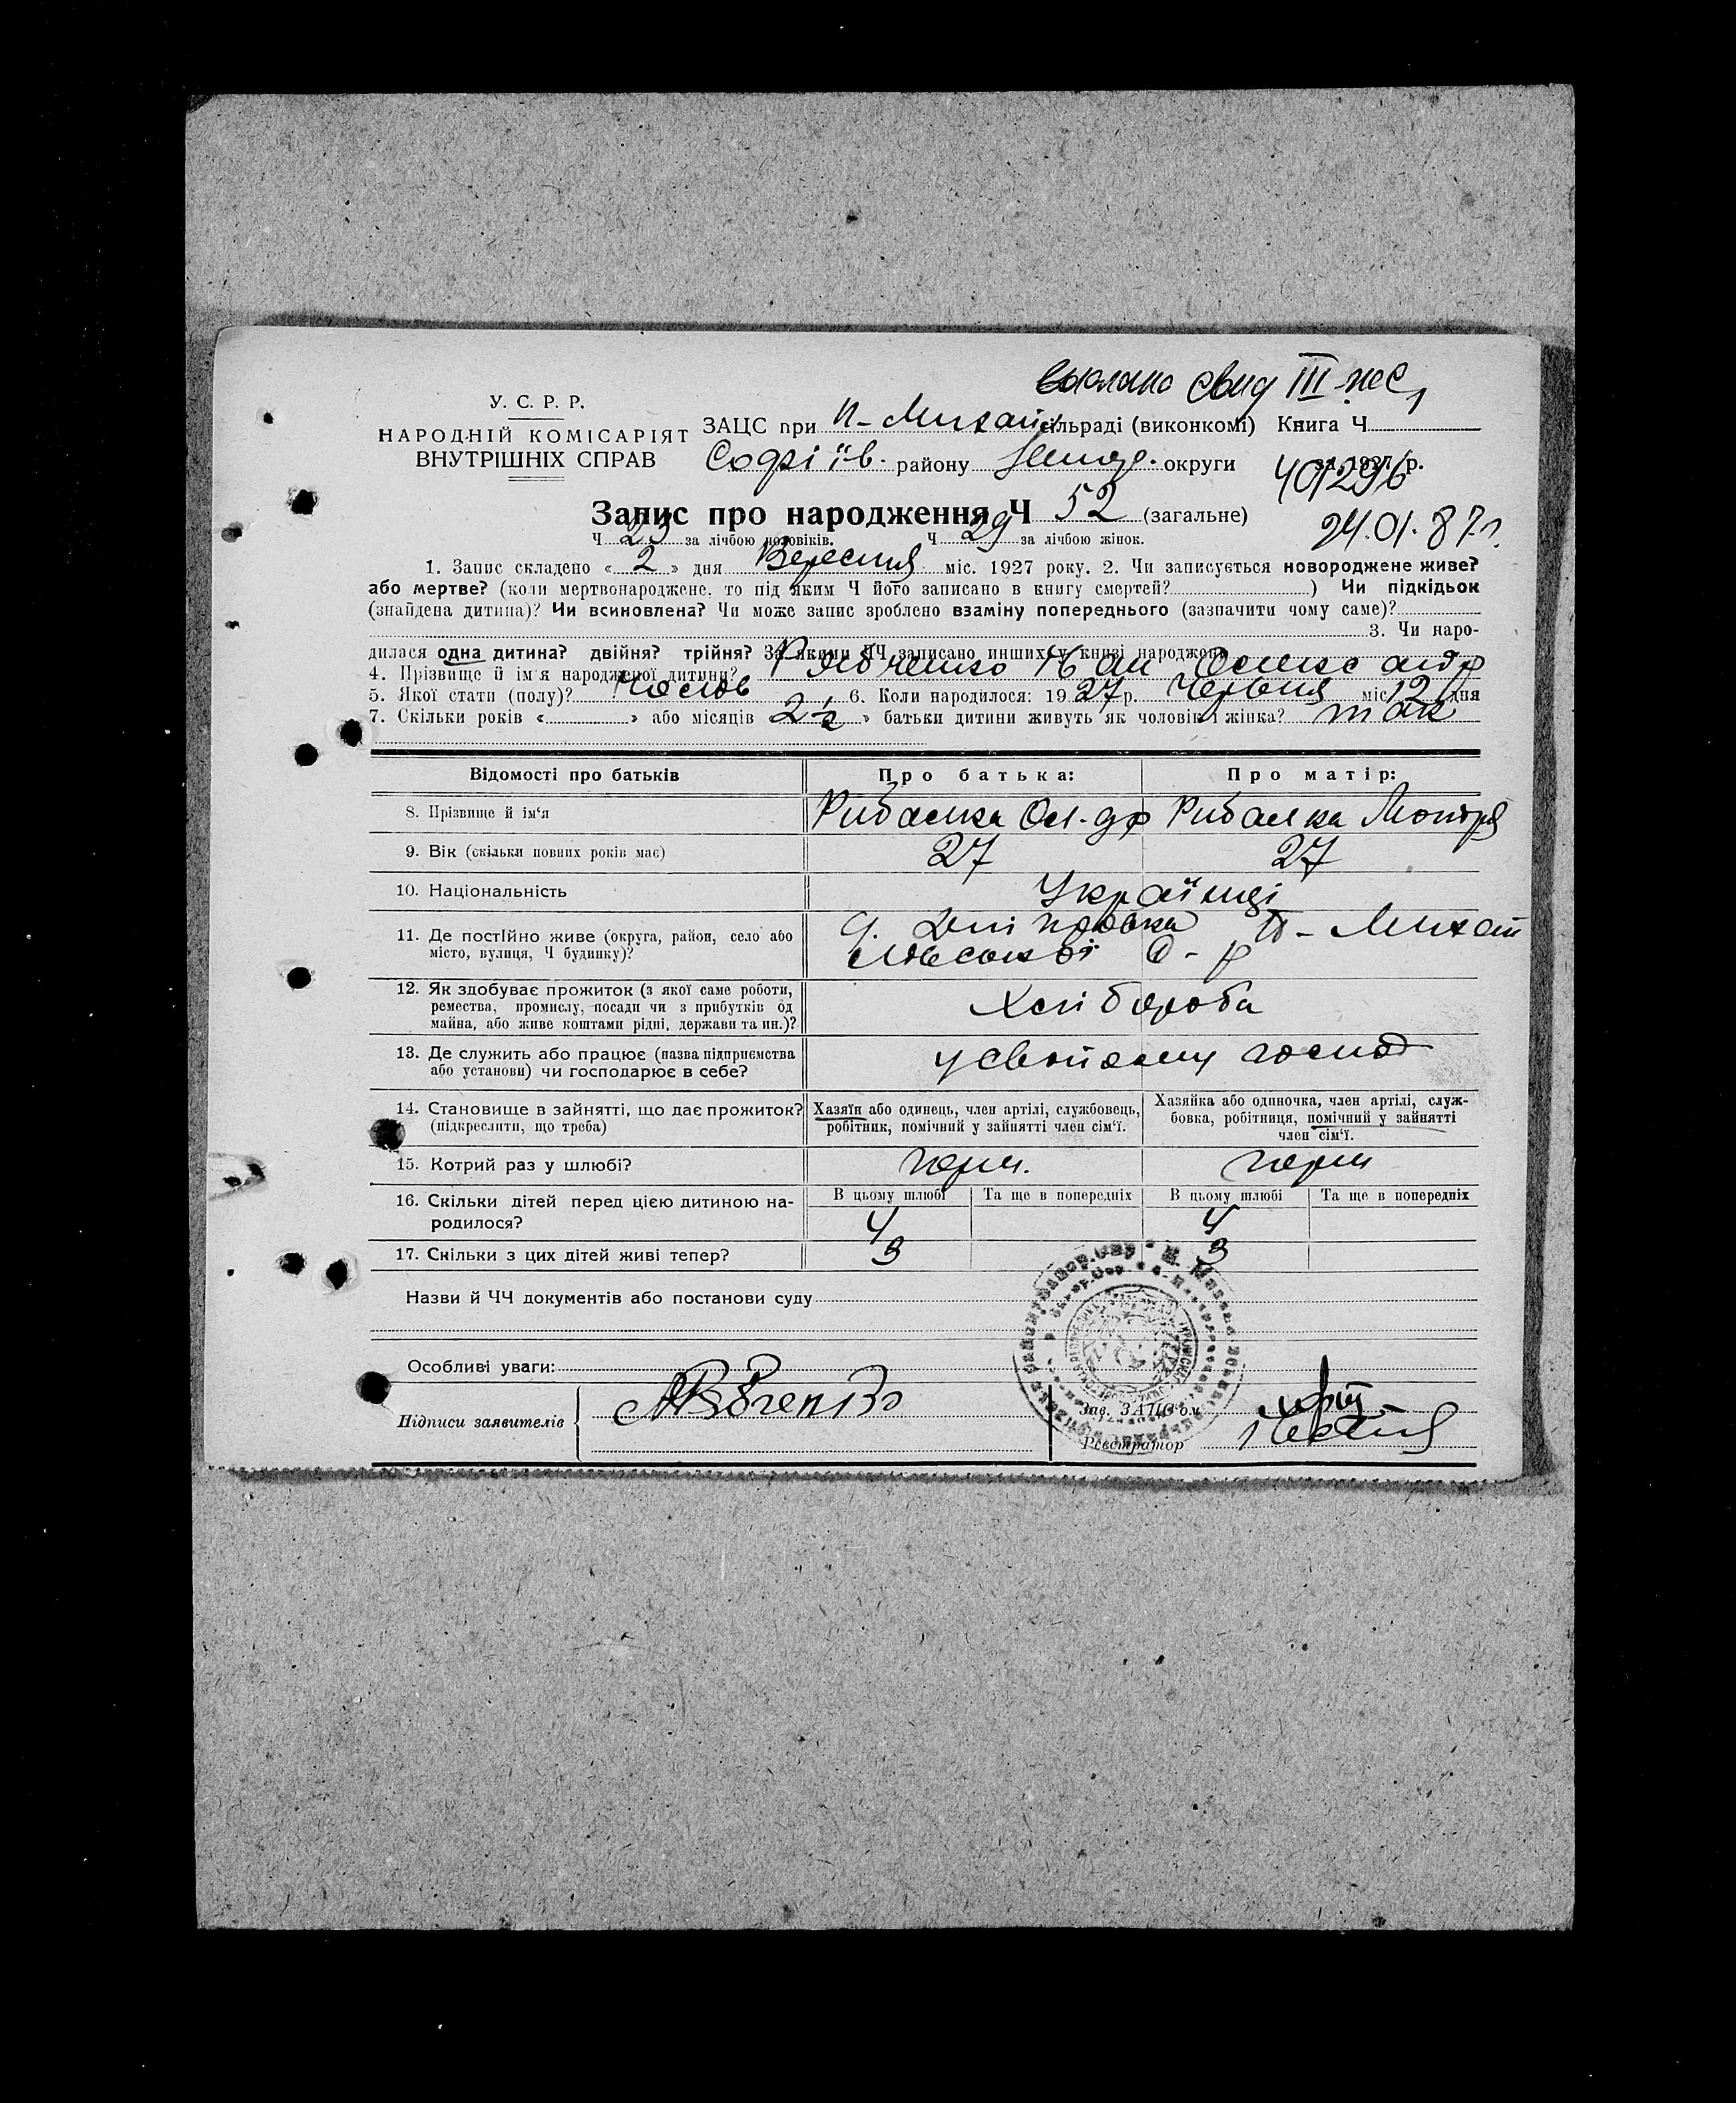 выслано свид III
У. С. Р. Р.
НАРОДНІЙ КОМІСАРІЯТ
ВНУТРІШНІХ СПРАВ
ЗАЦС при Н-Михай сільраді (виконкомі) Книга Ч
Софіїв. району округи за 1927 р.
401296
Запис про народження Ч 52 (загальне)
24.01.87г.
Ч 23 за лічбою чоловіків. Ч 29 за лічбою жінок.
1. Запис складено « 2 » дня Вересня міс. 1927 року. 2. Чи записується новороджене живе?
або мертве? (коли мертвонароджене, то під яким Ч його записано в книгу смертей? ) Чи підкідьок
(знайдена дитина)? Чи всиновлена? Чи може запис зроблено взаміну попереднього (зазначити чому саме)?
3. Чи наро-
дилася одна дитина? двійня? трійня? За якими ЧЧ записано инших у книзі народжень
4. Прізвище й ім'я народженої дитини? Рябченко Іван Олександр
5. Якої стати (полу)? Чолов 6. Коли народилося: 1927 р. Червня міс 12 дня
7. Скільки років « » або місяців « 2½ » батьки дитини живуть як чоловік і жінка? так
Відомості про батьків Про батька: Про матір:
8. Прізвище й ім'я Рибалка Ол-др Рибалка Мотря
9. Вік (скільки повних років має) 27 27
10. Національність Українці
11. Де постійно живе (округа, район, село або
місто, вулиця, Ч будинку)? Н-Михай
С-р
12. Як здобуває прожиток (з якої саме роботи,
ремества, промислу, посади чи з прибутків од
майна, або живе коштами рідні, держави та ин.)? Хлібороба
13. Де служить або працює (назва підприємства
або установи) чи господарює в себе? у свойому господ
14. Становище в зайнятті, що дає прожиток?
(підкреслити, що треба)
Хазяїн або одинець, член артілі, службовець,
робітник, помічний у зайнятті член сім'ї.
Хазяйка або одиночка, член артілі, служ-
бовка, робітниця, помічний у зайнятті
член сім'ї.
15. Котрий раз у шлюбі? перш. перш
16. Скільки дітей перед цією дитиною на-
родилося?
В цьому шлюбі Та ще в попередніх В цьому шлюбі Та ще в попередніх
4 4
17. Скільки з цих дітей живі тепер? 3 3
Назви й ЧЧ документів або постанови суду
Особливі уваги:
Підписи заявителів
Зав. ЗАЦС'ом
Реєстратор